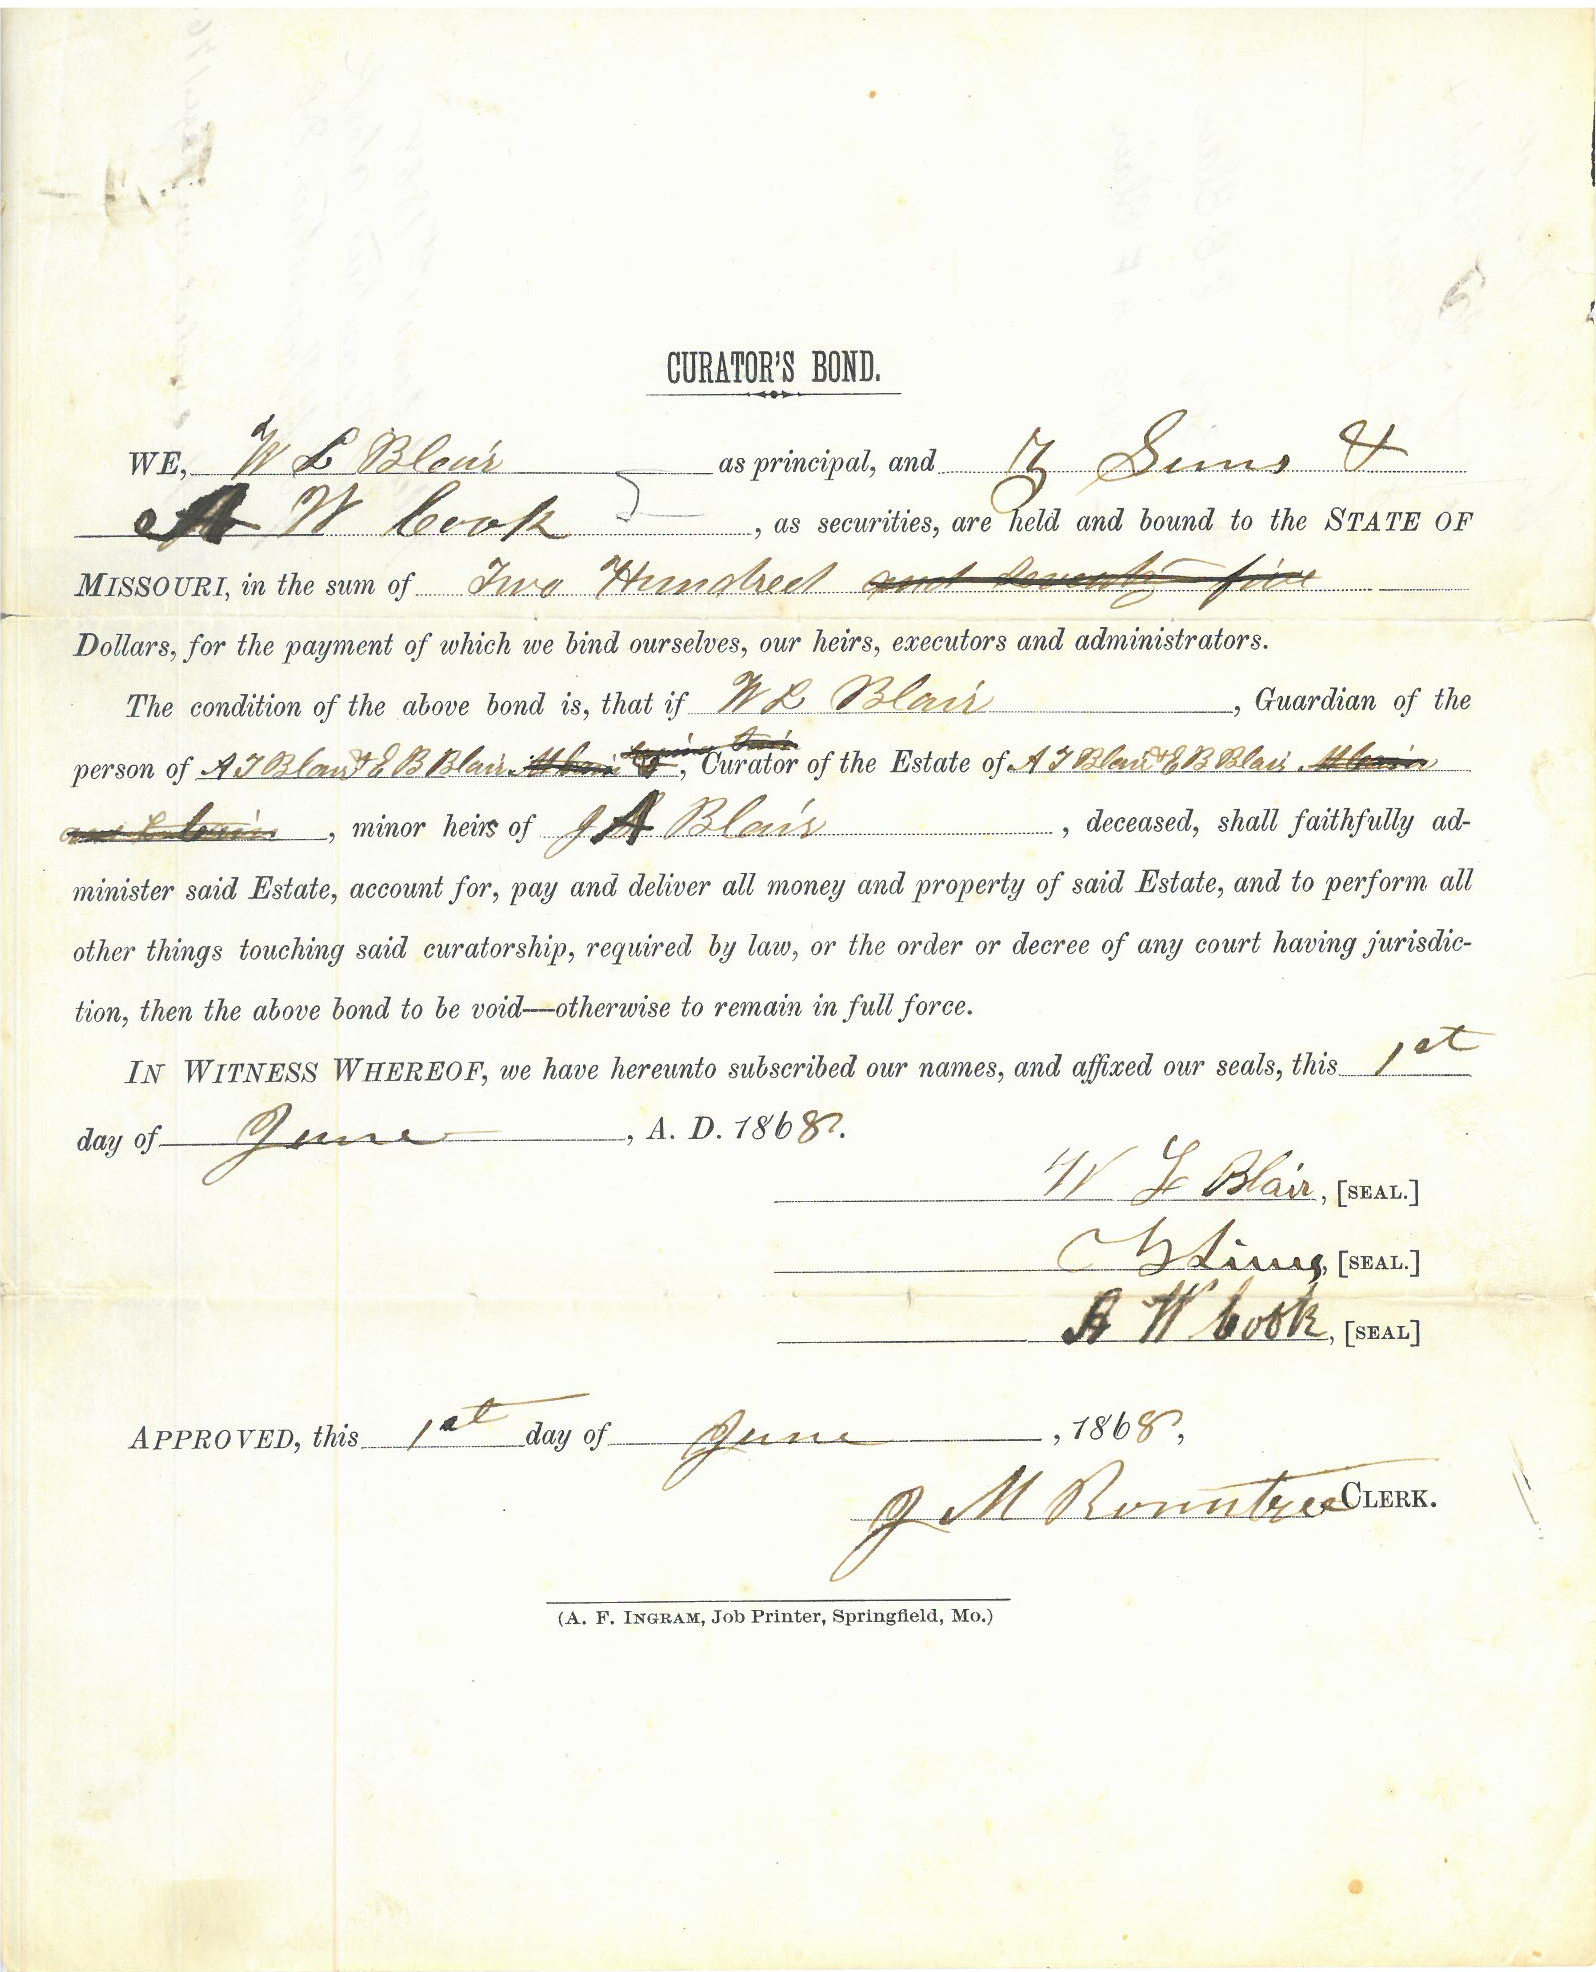 CURATOR'S BOND.
WE, W L Blair as principal, and Z Sims &
A W Cook, as securities, are held and bound to the STATE OF
MISSOURI, in the sum of Two Hundred and seventy five
Dollars, for the payment of which we bind ourselves, our heirs, executors and administrators.
The condition of the above bond is, that if W L Blair, Guardian of the
person of A J Blair & E B Blair, Curator of the Estate of A J Blair & E B Blair
, minor heirs of J A Blair, deceased, shall faithfully ad-
minister said Estate, account for, pay and deliver all money and property of said Estate, and to perform all
other things touching said curatorship, required by law, or the order or decree of any court having jurisdic-
tion, then the above bond to be void—otherwise to remain in full force.
IN WITNESS WHEREOF, we have hereunto subscribed our names, and affixed our seals, this 1st
day of June, A. D. 1868.
W L Blair, [SEAL.]
Z Sims, [SEAL.]
A W Cook, [SEAL]
APPROVED, this 1st day of June, 1868,
J M Rountree CLERK.
(A. F. INGRAM, Job Printer, Springfield, Mo.)